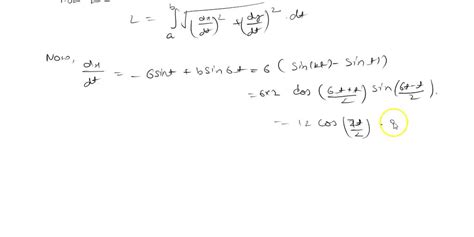 L = ∫ₐᵇ √((dx/dt)² + (dy/dt)²) · dt
Now, dx/dt = - 6 sint + 6 sin 6t = 6 ( sin(6t) - sin t )
= 6×2 cos (6t+t/2) sin (6t-t/2) .
= 12 cos (7t/2) · 8